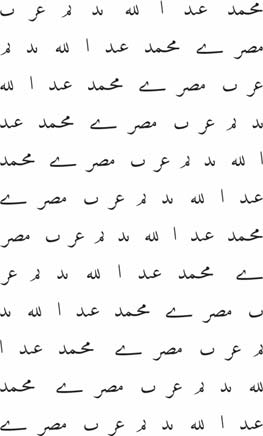 محمد عٮد ا لله ٮد لم عر ٮ
مصر ے محمد عٮد ا لله ٮد لم
عر ٮ مصر ے محمد عٮد ا لله
ٮد لم عر ٮ مصر ے محمد عٮد
ا لله ٮد لم عر ٮ مصر ے محمد
عٮد ا لله ٮد لم عر ٮ مصر ے
محمد عٮد ا لله ٮد لم عر ٮ مصر
ے محمد عٮد ا لله ٮد لم عر
ٮ مصر ے محمد عٮد ا لله ٮد
لم عر ٮ مصر ے محمد عٮد ا
لله ٮد لم عر ٮ مصر ے محمد
عٮد ا لله ٮد لم عر ٮ مصر ے